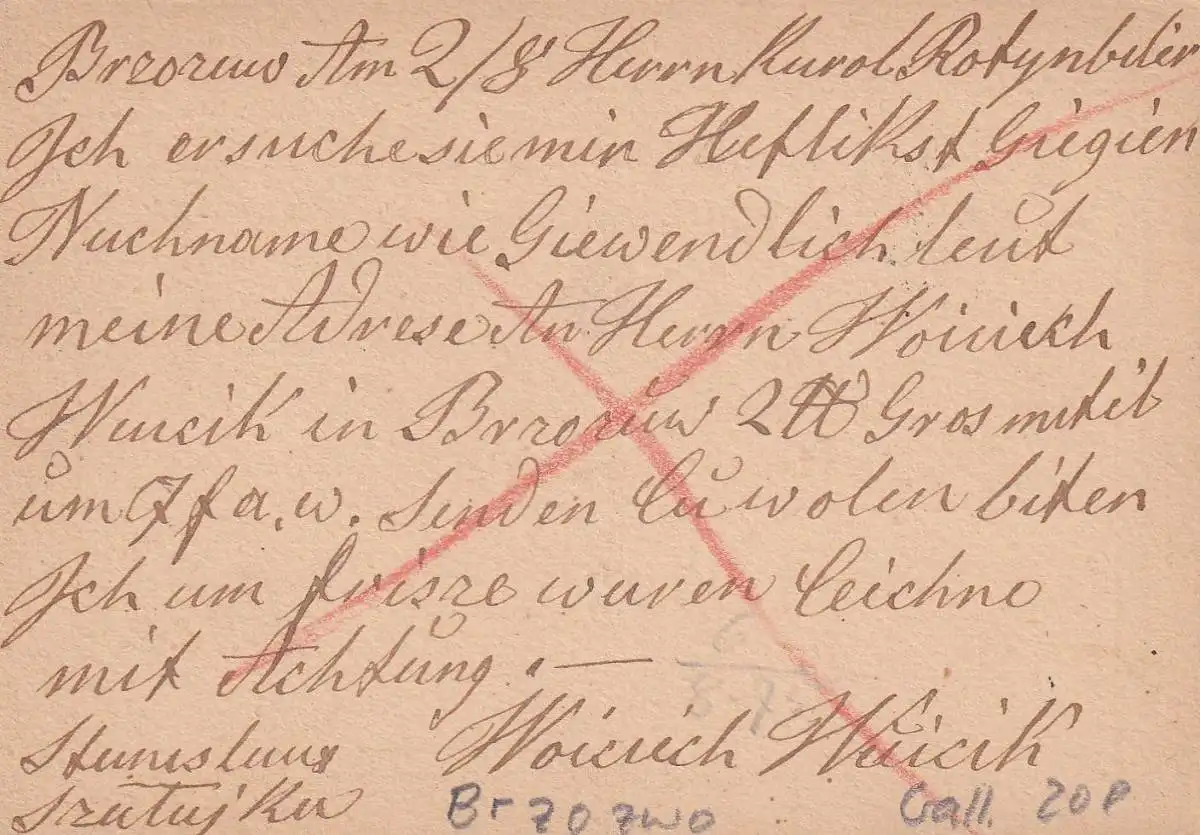 Brzozuw Am 2/8 Herrn Kurol Rotynbiler
Ich ersuche sie mir Heflikst Giegien
Nuchname wie Giewendlich leut
meine Adrese An Herrn Woiciech
Wucik in Brzozuw 2 ℔ Gros
um 7 f a. w. Senden Cu wolen biten
Ich um frisze wuren Ceichno
mit Achtung. —
Woiciech Wucik
Stunisluus
Brzozwo Gall. 20P